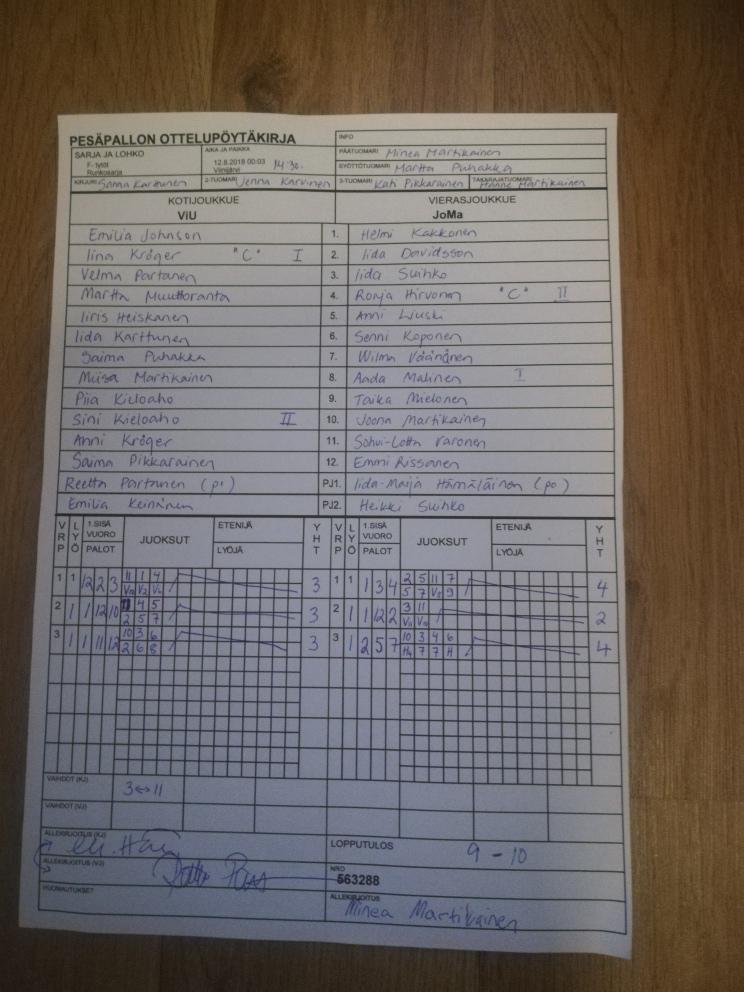 PESÄPALLON OTTELUPÖYTÄKIRJA
INFO
SARJA JA LOHKO
F- tytöt
Runkosarja
AIKA JA PAIKKA
12.8.2018 00:03 14:30.
Viinijärvi
PÄÄTUOMARI Minea Martikainen
SYÖTTÖTUOMARI Martta Puhakka
KIRJURI Sanna Karttunen
2-TUOMARI Jenna Karvinen
3-TUOMARI Kati Pikkarainen
TAKARAJATUOMARI Martikainen
KOTIJOUKKUE
ViU
VIERASJOUKKUE
JoMa
Emilia Johnson 1. Helmi Kakkonen
Iina Kröger "C" I 2. Iida Davidsson
Velma Partanen 3. Iida Suihko
Martta Muuttoranta 4. Ronja Hirvonen "C" II
Iiris Heiskanen 5. Anni
Iida Karttunen 6. Senni Koponen
Saima Puhakka 7. Wilma Väänänen
Miisa Martikainen 8. Aada Malinen I
Piia Kieloaho 9. Taika Mielonen
Sini Kieloaho II 10. Joona Martikainen
Anni Kröger 11. Varonen
Saima Pikkarainen 12. Emmi Rissanen
Reetta Partanen PJ1. Iida-Maija Hämäläinen (po)
Emilia Keinänen PJ2. Heikki Suihko
VRP LYÖ 1.SISÄ VUORO PALOT JUOKSUT ETENIJÄ LYÖJÄ YHT VRP LYÖ 1.SISÄ VUORO PALOT JUOKSUT ETENIJÄ LYÖJÄ YHT
11 1 4 2 5 11 7
1 1 12 2 3 3 1 1 1 3 4 4
4 5 3 11
2 1 1 12 10 2 5 7 3 2 1 1 12 2 2
10 3 6 10 3 4 6
3 1 1 11 12 2 6 8 3 3 1 2 5 7 4
VAIHDOT (KJ) 3↔11
VAIHDOT (VJ)
ALLEKIRJOITUS (KJ)
LOPPUTULOS 9 - 10
ALLEKIRJOITUS (VJ)
NRO
563288
HUOMAUTUKSET
ALLEKIRJOITUS
Minea Martikainen